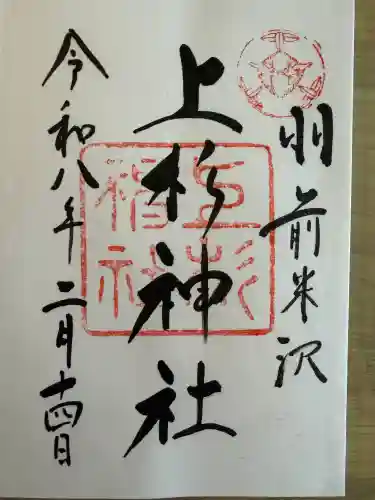 羽前米沢
上杉神社
令和八年二月十四日